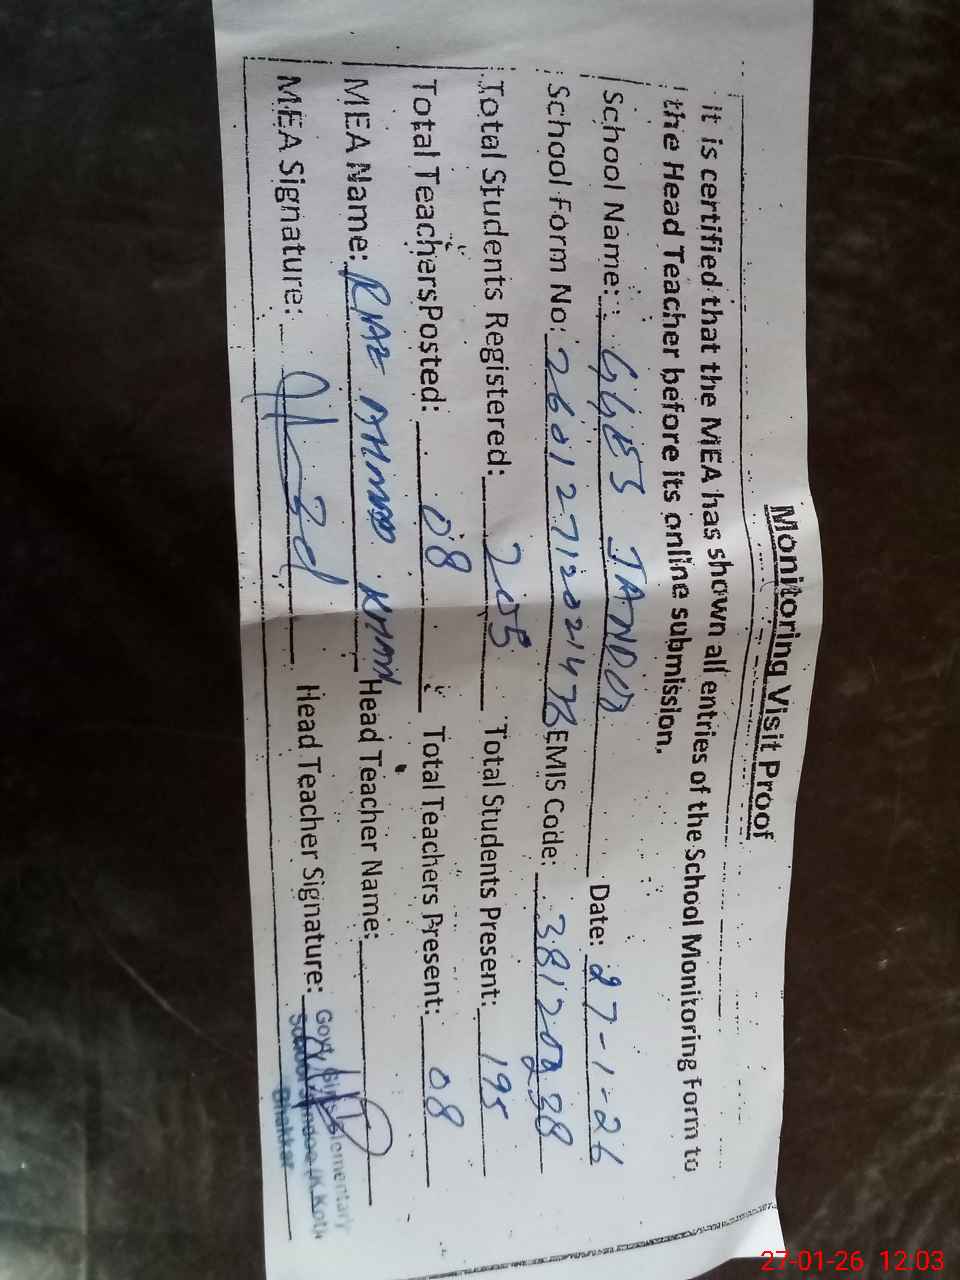 Monitoring Visit Proof
It is certified that the MEA has shown all entries of the School Monitoring Form to
the Head Teacher before its online submission.
School Name: GGES JANDAN Date: 27-1-26
School Form No: EMIS Code:
Total Students Registered: 205 Total Students Present: 195
Total TeachersPosted: 08 Total Teachers Present: 08
MEA Name: RIAZ AHMAD KHAN Head Teacher Name:
MEA Signature: Head Teacher Signature:
Govt. Girls Elementary
School
Bhakkar
27-01-26 12.03